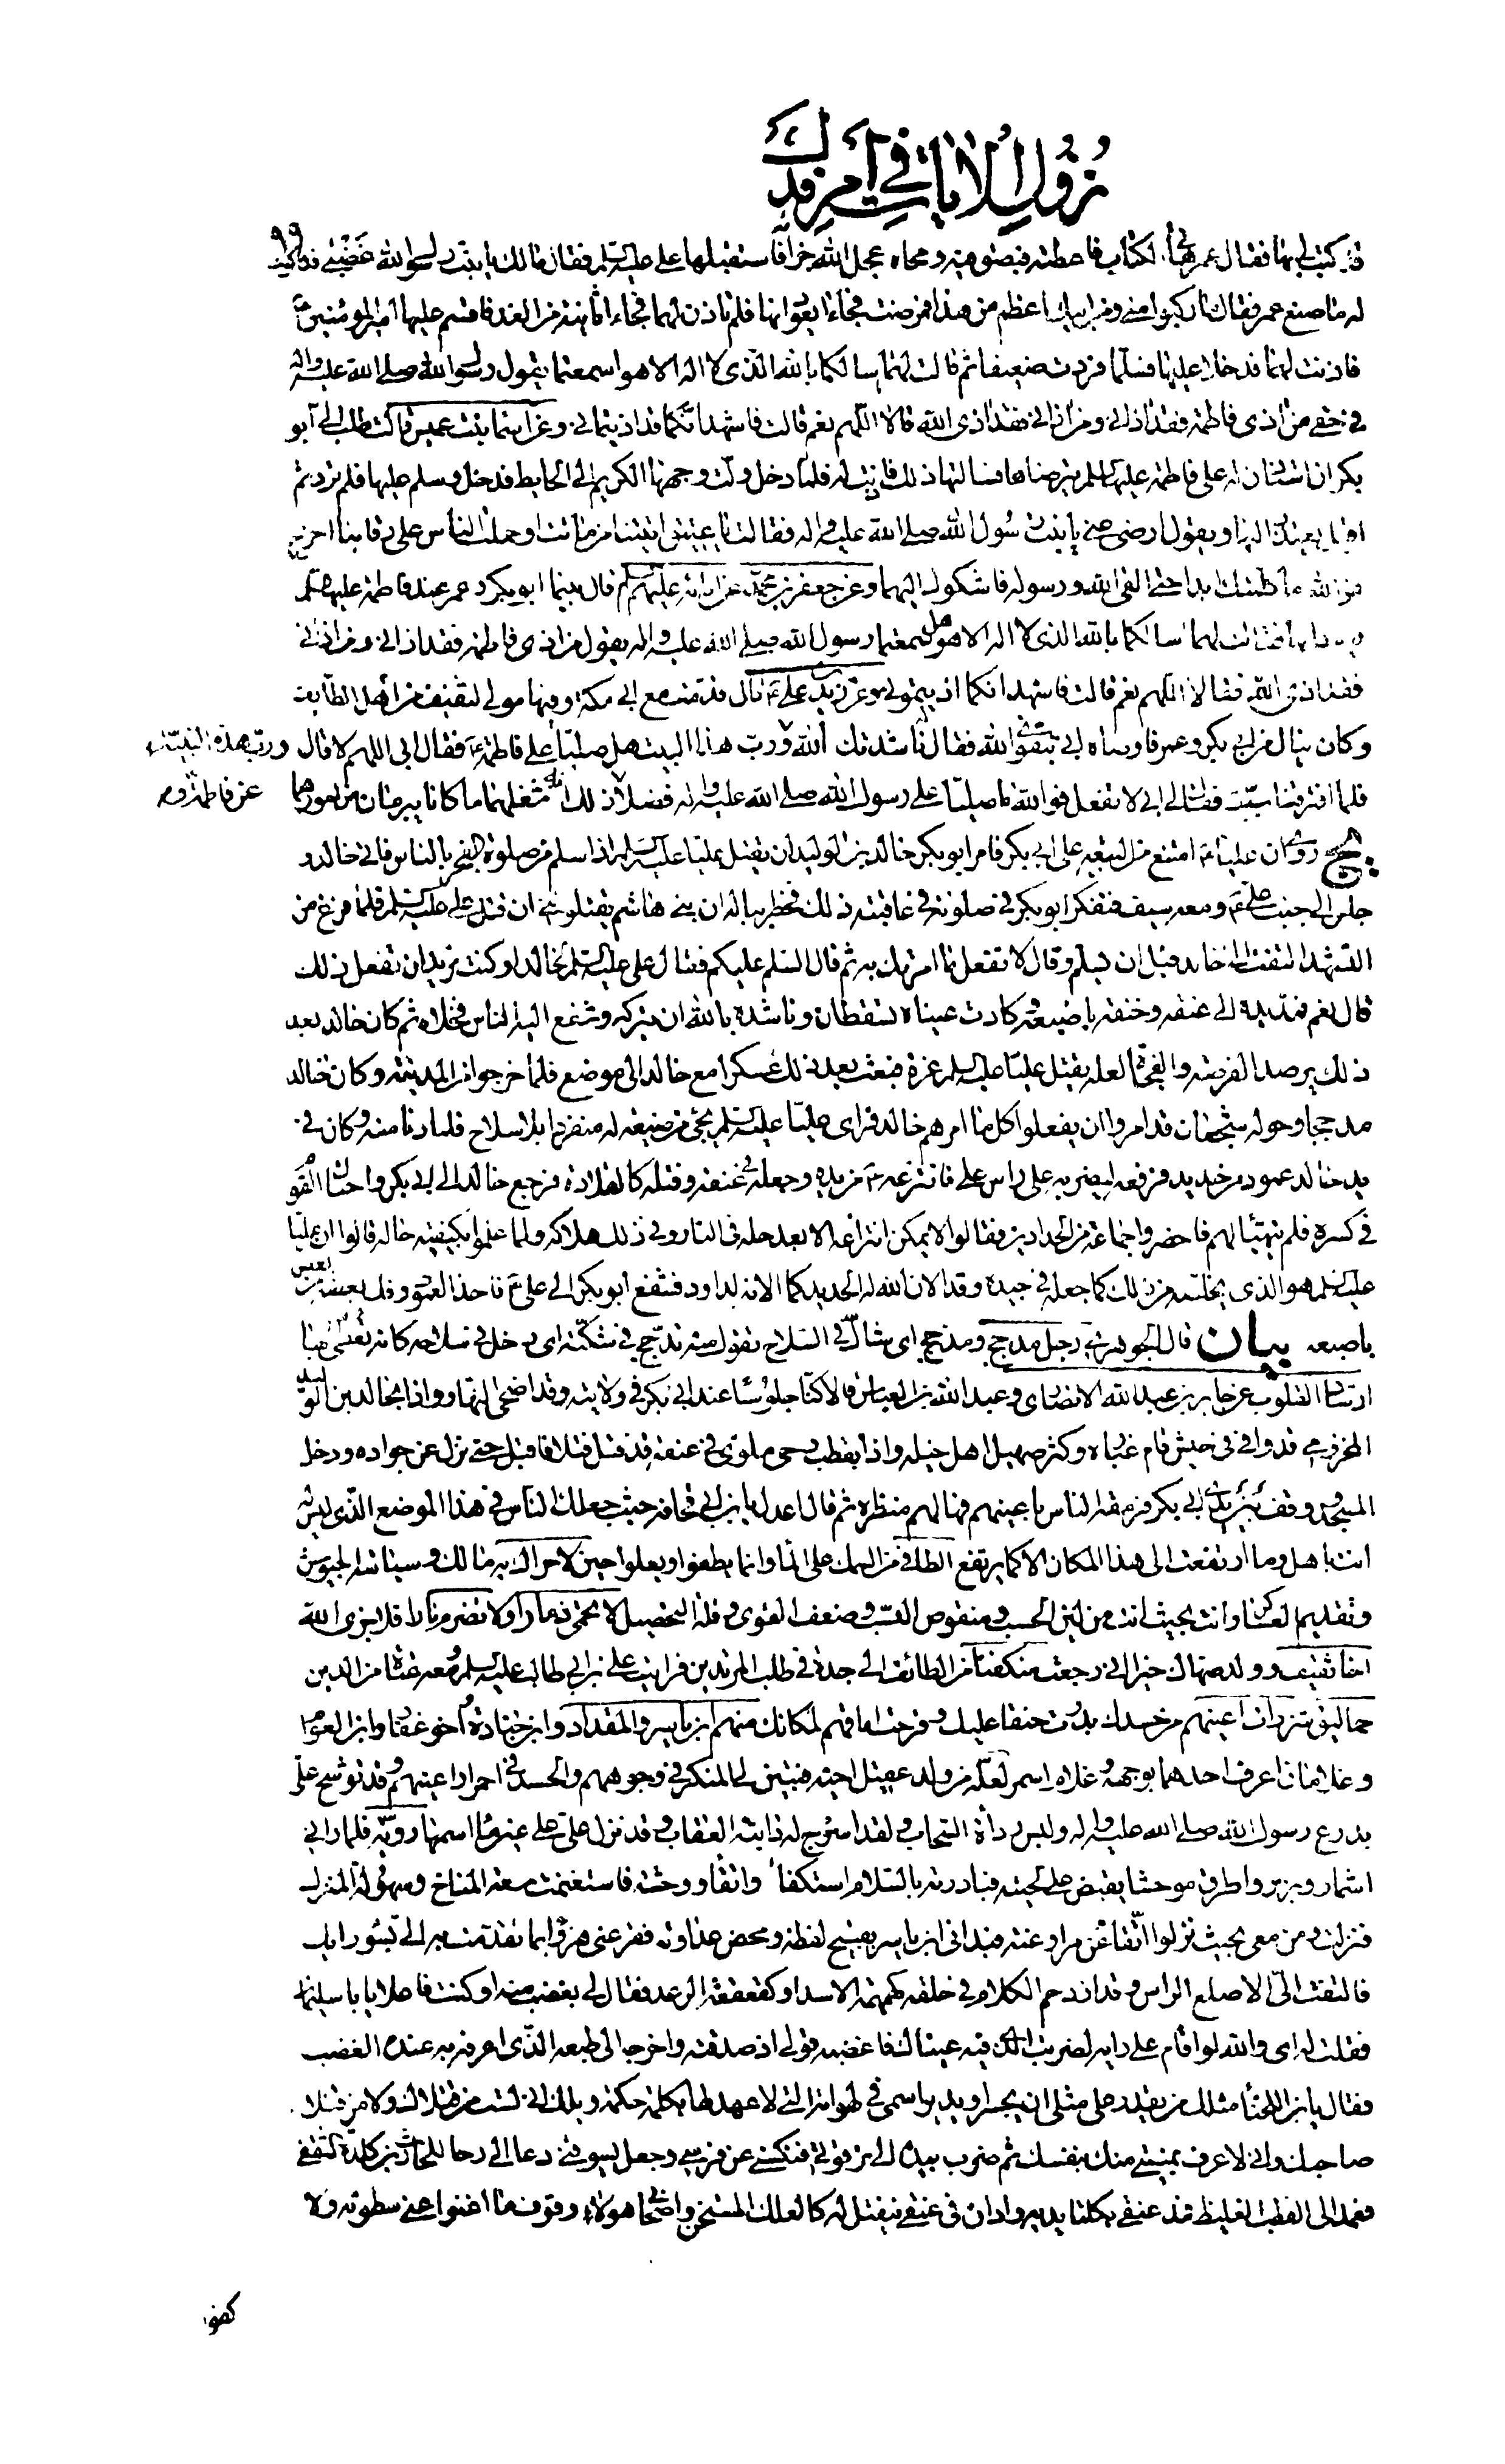 نزول الايات في امر فدك
٩٩
كتب لي بها فقال عمر هاتي الكتاب فاعطته فبصق فيه ومحاه عجل الله جزاه فاستقبلها علي عليه السلم فقال مالك يا بنت رسول الله غضبتي فذكرت
له ما صنع عمر فقال ما ركبوا مني ومن ابيك اعظم من هذا فمرضت فجاءا يعودانها فلم تاذن لهما فجاءا ثانية من الغد فاقسم عليها امير المؤمنين
فاذنت لهما فدخلا عليها فسلما فردت ضعيفا ثم قالت لهما سالتكما بالله الذي لا اله الا هو اسمعتما يقول رسول الله صلى الله عليه واله
في حقي من اذى فاطمة فقد اذاني ومن اذاني فقد اذى الله قالا اللهم نعم قالت فاشهد انكما قد اذيتماني وعن اسما بنت عميس قالت طلب الي ابو
بكر ان استاذن له على فاطمة عليها السلم يترضاها فسالتها ذلك فاذنت له فلما دخل ولت وجهها الكريم الى الحايط فدخل وسلم عليها فلم ترد ثم
اقبل يعتذر اليها ويقول ارضي عني يا بنت رسول الله صلى الله عليه واله فقالت يا عتيق اتيتنا من ماتت او حملت الناس على رقابنا اخرج
فوالله ما كلمتك ابدا حتى القى الله ورسوله فاشكوك اليهما وعن جعفر بن محمد عن ابائه عليهم السلم قال بينما ابو بكر وعمر عند فاطمة عليها السلم
فقالت لهما اسالكما بالله الذي لا اله الا هو هل سمعتما رسول الله صلى الله عليه واله يقول من اذى فاطمة فقد اذاني ومن اذاني
فقد اذى الله فقالا اللهم نعم قالت فاشهد انكما اذيتموني وعن زيد بن علي ع قال قدمت مع ابي مكة وفيها مولى لثقيف من اهل الطايف
وكان ينال من ابي بكر وعمر فاوصاه ابي بتقوى الله فقال له ناشدتك الله ورب هذا البيت هل صليا على فاطمة ع فقال ابي اللهم لا قال
ورب هذه البنية
فلما افترقنا سببته فقال لي ابي لا تفعل فوالله ما صليا على رسول الله صلى الله عليه واله فضلا عن فاطمة وذلك انه شغلهما ما كانا يبرمان من امورهما
عن فاطمة
يج روي ان عليا ع امتنع من البيعة على ابي بكر فامر ابو بكر خالد بن الوليد ان يقتل عليا عليه السلم اذا سلم من صلوة الفجر بالناس فاتى خالد و
جلس الى جنب علي ع ومعه سيف فتفكر ابو بكر في صلوته في عاقبة ذلك فخطر بباله ان بني هاشم يقتلونني ان قتل علي عليه السلم فلما فرغ من
التشهد التفت الى خالد قبل ان يسلم وقال لا تفعل ما امرتك به ثم قال السلم عليكم فقال علي عليه السلم لخالد او كنت تريد ان تفعل ذلك
قال نعم فمد يده الى عنقه وخنقه باصبعه وكادت عيناه تسقطان وناشده بالله ان يتركه وشفع اليه الناس فخلاه ثم كان خالد بعد
ذلك يرصد الفرصة والفجأة لعله يقتل عليا عليه السلم غرة فبعث بعد ذلك عسكرا مع خالد الى موضع فلما خرجوا من المدينة وكان خالد
مدججا وحوله شجعان قد امروا ان يفعلوا كل ما امرهم خالد فراى عليا عليه السلم يجئ من ضيعة له منفردا بلا سلاح فلما دنا منه وكان في
يد خالد عمود من حديد فرفعه ليضربه على راس علي فانتزعه ع من يده وجعله في عنقه وفتله كالقلادة فرجع خالد الى ابي بكر واحتال القوم
في كسره فلم يتهيأ لهم فاحضروا جماعة من الحدادين فقالوا لا يمكن انتزاعه الا بعد حله في النار وفي ذلك هلاكه ولما علموا بكيفية حاله قالوا ان عليا
عليه السلم هو الذي يخلصه من ذلك كما جعله في جيده وقد الان الله له الحديد كما الانه لداود فشفع ابو بكر الى علي ع فاخذ العمود وفك بعضه من بعض
باصبعه بيان قال الجوهري رجل مدجج ومدجج اي شاك في السلاح تقول منه تدجج في شكته اي دخل في سلاحه كانه تغطى بها
ارشاد القلوب عن جابر بن عبد الله الانصاري وعبد الله بن العباس قالا كنا جلوسا عند ابي بكر في ولايته وقد اضحى النهار واذا بخالد بن الوليد
المخزومي قد وافى في جيش قام غباره وكثر صهيل اهل خيله واذا بقطب رحى ملوي في عنقه قد فتل فتلا فاقبل حتى نزل عن جواده ودخل
المسجد ووقف بين يدي ابي بكر فرمقه الناس باعينهم فهالهم منظره ثم قال اعدل يا بن ابي قحافة حيث جعلك الناس في هذا الموضع الذي ليس له
انت باهل وما ارتفعت الى هذا المكان الا كما يرتفع الطافي من السمك على الماء وانما يطفو ويعلو حين لا حراك به مالك وسياسة الجيوش
وتقديم العساكر وانت بحيث انت من لين الحسب ومنقوص النسب وضعف القوى وقلة التحصيل لا تحمي ذمارا ولا تضرم نارا فلا جزى الله
اخا ثقيف وولد صهاك خيرا اني رجعت منكفئا من الطائف الى جدة في طلب المرتدين فرايت علي بن ابي طالب عليه السلم ومعه عتاة من الدين
حماليق تزورت اعينهم من حسدك بدرت حنقا عليك وقرحت اماقهم لمكانك منهم ابن ياسر والمقداد وابن جنادة اخو غفار وابن العوام
وغلامان اعرف احدهما بوجهه وغلام اسمر لعله من ولد عقيل اخيه فتبين لي المنكر في وجوههم والحسد في احمرار اعينهم وقد توشح علي
بدرع رسول الله صلى الله عليه واله ولبس رداه السحاب ولقد اسرج له دابته العقاب وقد نزل علي على عين ماء اسمها روية فلما راني
اشمأز وبربر واطرق موحشا يقبض على لحيته فبادرته بالسلام استكفاء واتقاء ووحشة فاستغنمت سعة المناخ وسهولة المنزل
فنزلت ومن معي بحيث نزلوا اتقاء عن مراوغته فبداني ابن ياسر بقبيح لفظه ومحض عداوته فقرعني هزوا بما تقدمت به الي بسوء رايك
فالتفت الي الاصلع الراس وقد ازدحم الكلام في حلقه كهمهمة الاسد او كقعقعة الرعد فقال لي بغضب منه او كنت فاعلا يا با سليمان
فقلت له اي والله لو اقام على رايه لضربت الذي فيه عيناك فاغضبه قولي اذ صدقته واخرجه الى طبعه الذي اعرفه به عند الغضب
فقال يا بن اللخناء مثلك من يقدر على مثلي ان يجسر او يدير اسمي في لهواته التي لا عهد لها بكلمة حكمة ويلك اني لست من قتلاك ولا من قتلى
صاحبك واني لاعرف بمنيتي منك بنفسك ثم ضرب بيده الى ترقوتي فنكسني عن فرسي وجعل يسوقني دعا الى رحا للحارث بن كلدة الثقفي
فعمد الى القطب الغليظ فمد عنقي بكلتا يديه واداره في عنقي ينفتل له كالعلك المستخن واصحابي هؤلاء وقوف ما اغنوا عني سطوته ولا
كفوا